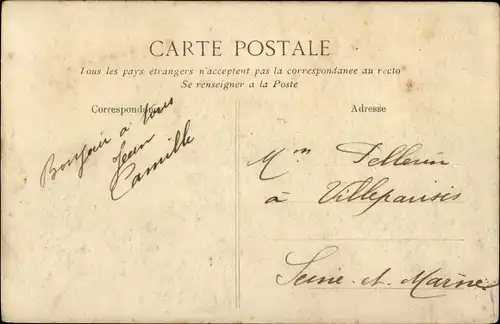 CARTE POSTALE
Tous les pays étrangers n'acceptent pas la correspondance au recto
Se renseigner a la Poste
Correspondance
Adresse
Bonjour à tous
Jean
Camille
Mon Pellerin
à Villeparisis
Seine-et-Marne